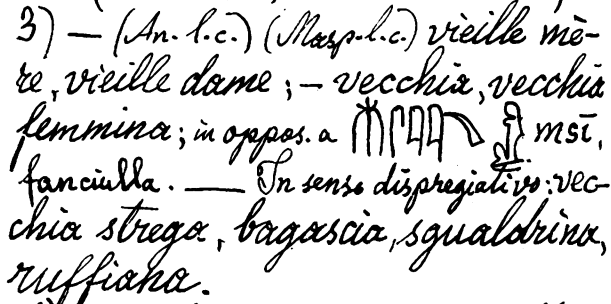 3) — (An. l.c.) (Masp. l.c.) vieille mè-
re, vieille dame; — vecchia, vecchia
femmina; in oppos. a msi,
fanciulla. — In senso dispregiativo: vec-
chia strega, bagascia, sgualdrina,
ruffiana.